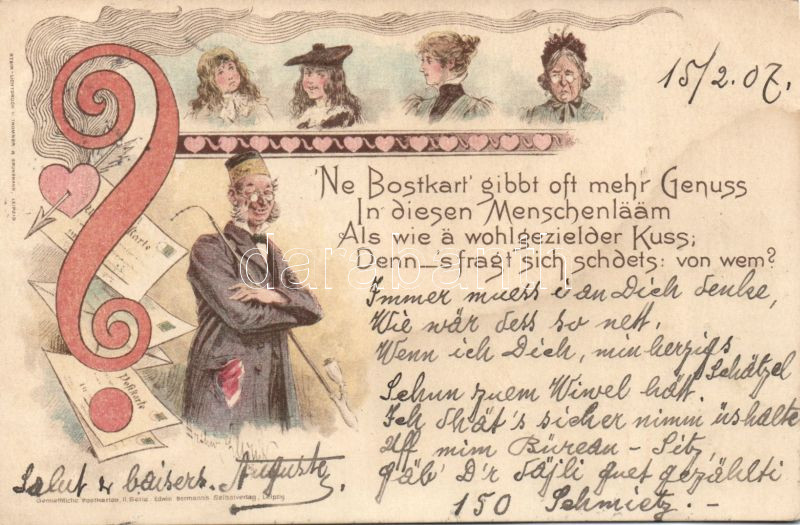 15/2.07.
'Ne Bostkart' gibbt oft mehr Genuss
In diesen Menschenlääm
Als wie ä wohlgezielder Kuss;
Denn – 's fragt sich schdets: von wem?
Immer muess i an Dich denke,
Wie wär dess so nett,
Wenn ich Dich, min herzigs
Schätzel
Schun zuem Wiwel hätt.
Ich dhät's sicher nimm üshalte
Uff mim Büreau-Sitz,
gäb' D'r däjli guet gezählti
150 Schmietz.-
Postkarte
Salut & baisers. Auguste
Gemiethliche Postkarten, II. Serie. Edwin Bormann's Selbstverlag, Leipzig
darabanth